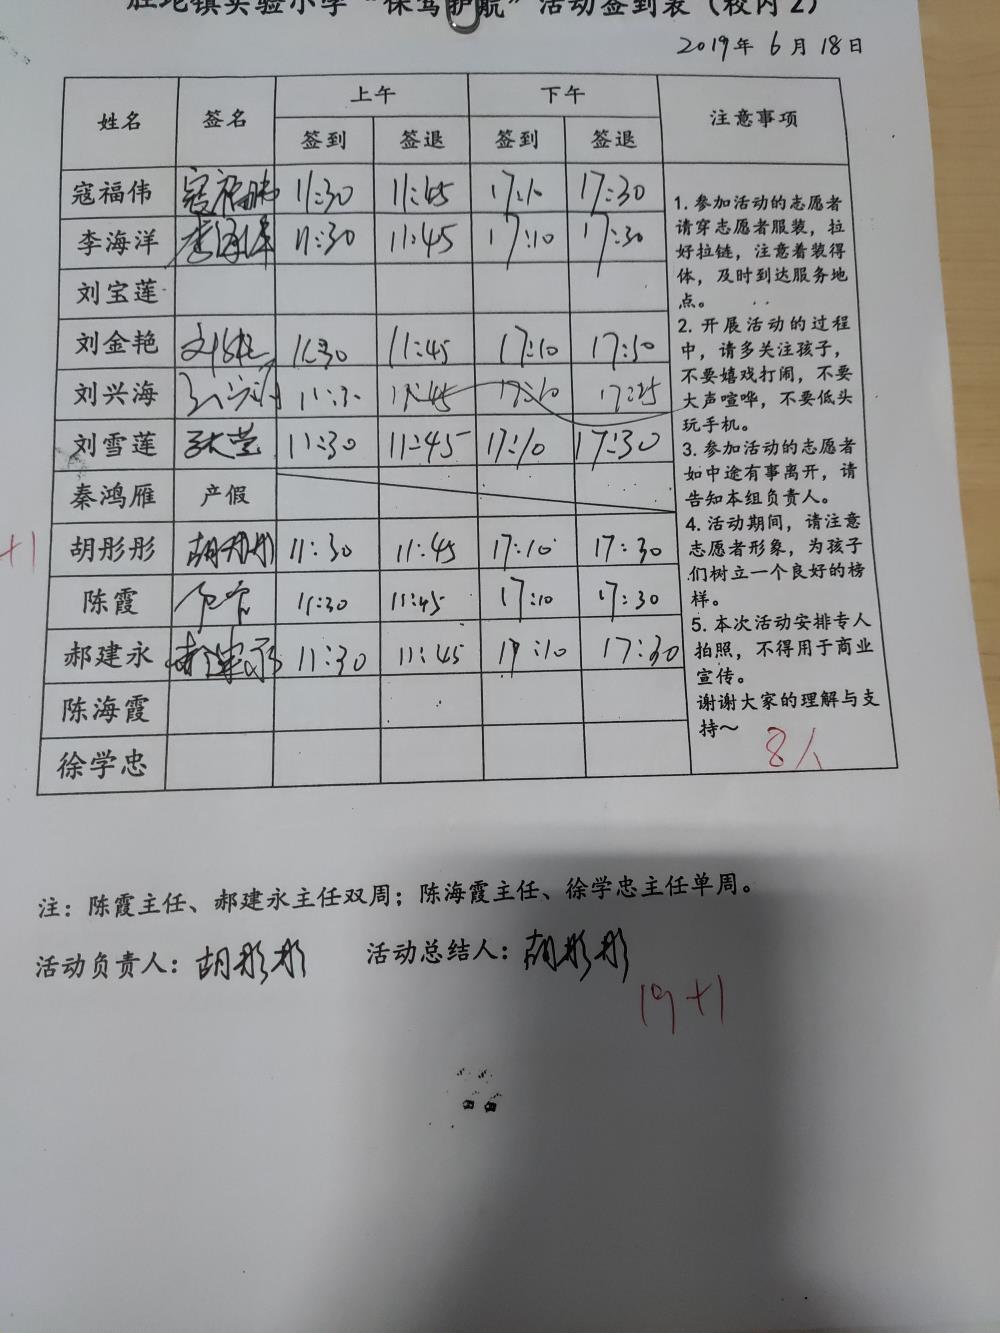 胜坨镇实验小学“保驾护航”活动签到表（校内2）
2019年 6月 18日
姓名 签名 上午 下午 注意事项
签到 签退 签到 签退
寇福伟 寇福伟 11:30 11:45 17:10 17:30
李海洋 李海洋 11:30 11:45 17:10 17:30
刘宝莲
刘金艳 11:30 11:45 17:10 17:30
刘兴海 11:30 17:45 17:10 17:25
刘雪莲 11:30 11:45 17:10 17:30
秦鸿雁 产假
+1
胡彤彤 胡彤彤 11:30 11:45 17:10 17:30
陈霞 11:30 11:45 17:10 17:30
郝建永 郝建永 11:30 11:45 17:10 17:30
陈海霞
徐学忠
1. 参加活动的志愿者
请穿志愿者服装，拉
好拉链，注意着装得
体，及时到达服务地
点。
2. 开展活动的过程
中，请多关注孩子，
不要嬉戏打闹，不要
大声喧哗，不要低头
玩手机。
3. 参加活动的志愿者
如中途有事离开，请
告知本组负责人。
4. 活动期间，请注意
志愿者形象，为孩子
们树立一个良好的榜
样。
5. 本次活动安排专人
拍照，不得用于商业
宣传。
谢谢大家的理解与支
持～
8人
注：陈霞主任、郝建永主任双周；陈海霞主任、徐学忠主任单周。
活动负责人：胡彤彤 活动总结人：胡彤彤
19+1